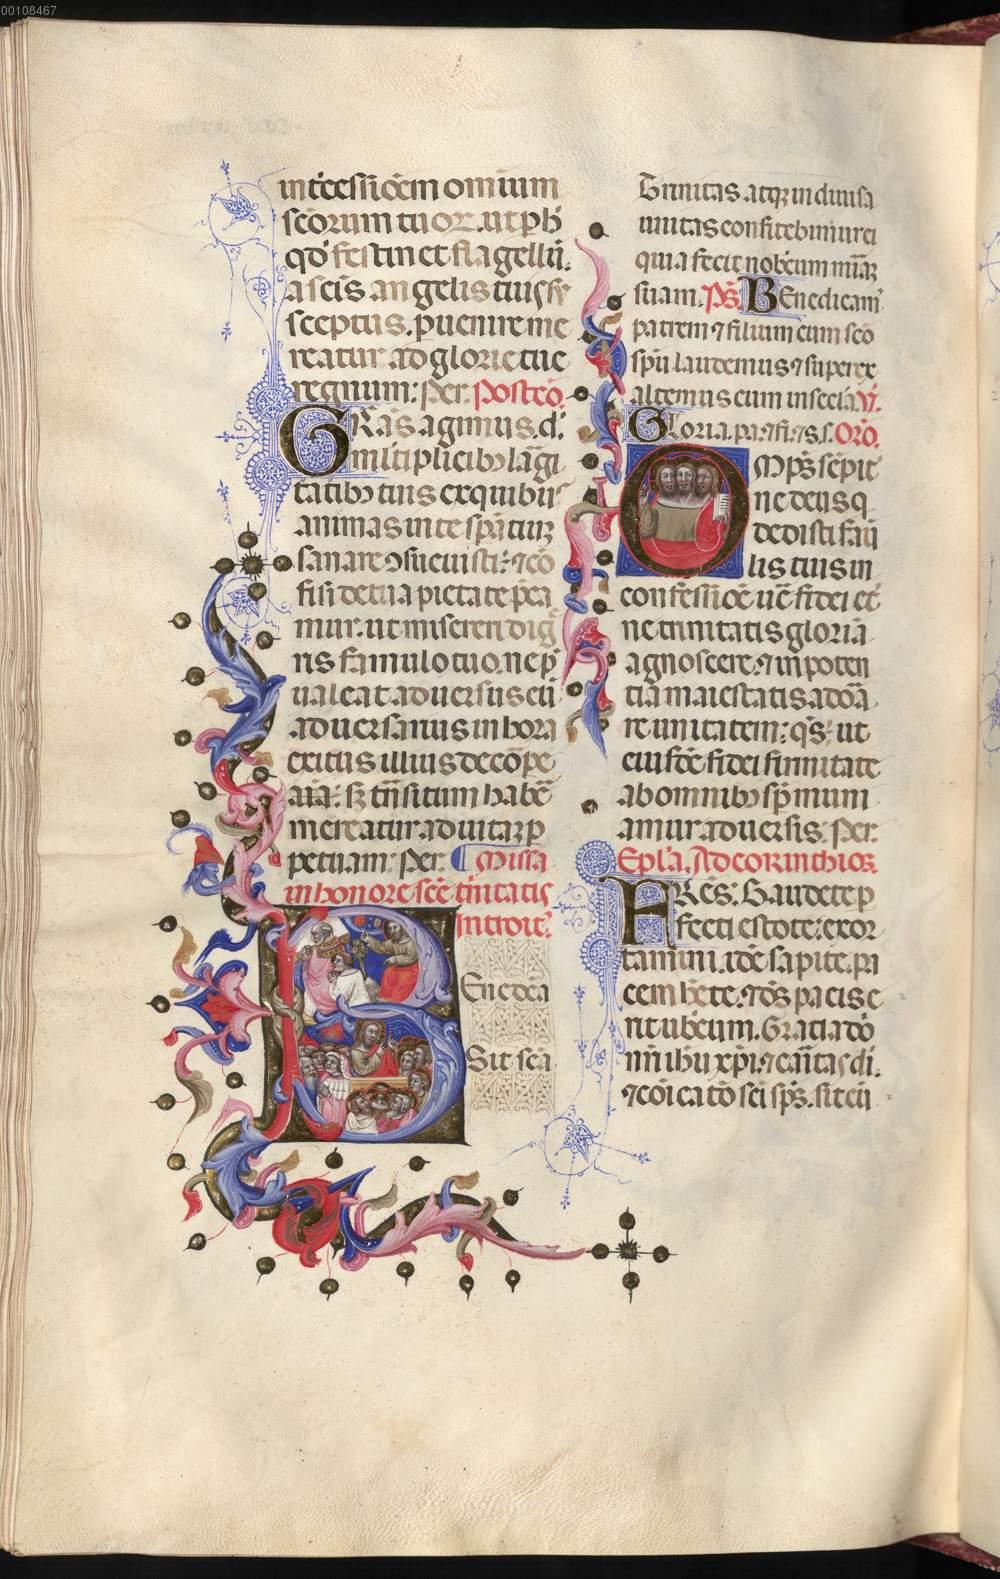 00108467
intcessiōem omnium
scōrum tuoꝝ. ut p̄ h̄
qd̄ festinet flagellū.
a scīs angelis tuis su
sceptus. puenire me
reatur ad glorie tue
regnum: Per. Postcō.
GRās agimus. d.
multiplicib; largi
tatib; tuis ex quibus
animas in te spātiuꝫ
sanare ɔsueuisti: ⁊ cō
fisi de tua pietate p̄ca
mur. ut misereri dig
ris famulo tuo. ne p̄
ualeat aduersus eū
aduersarius in hora
exitus illius de corpe
aīa: sꝫ tn̄situm habē
mereatur ad uitaꝫ p
petuam: Per. Missa
in honore scē trinitatis
Introit.
BEnedca
Sit sca
Trinitas. atqꝫ indiuisa
unitas confitebimur ei
quia fecit nobcum miāꝫ
suam. Ps̄. BEnedicam
patrem ⁊ filium cum scō
spū laudemus ⁊ superex
altemus eum in secla. V.
Gloria. pa. ⁊ fi. ⁊ s. s. Orō.
OMps̄ sēpit
ne deus q
dedisti fam
lis tuis in
confessiōe uē fidei et
ne trinitatis gloriā
agnoscere. ⁊ in poten
tia maiestatis adōa
re unitatem: qs̄ ut
eiusdē fidei firmitate
ab omnib; sp̄ muni
amur aduersis: Per.
Epla. Ad corinthios.
FRēs: Gaudete p
fecti estote: exor
tamini. idē sapite. pa
cem hēte. ⁊ ds̄ pacis e
rit ubcum. Gratia dō
nīri ihu xp̄i ⁊ cāritas di.
⁊ cōicatō sci sp̄s. sit cū